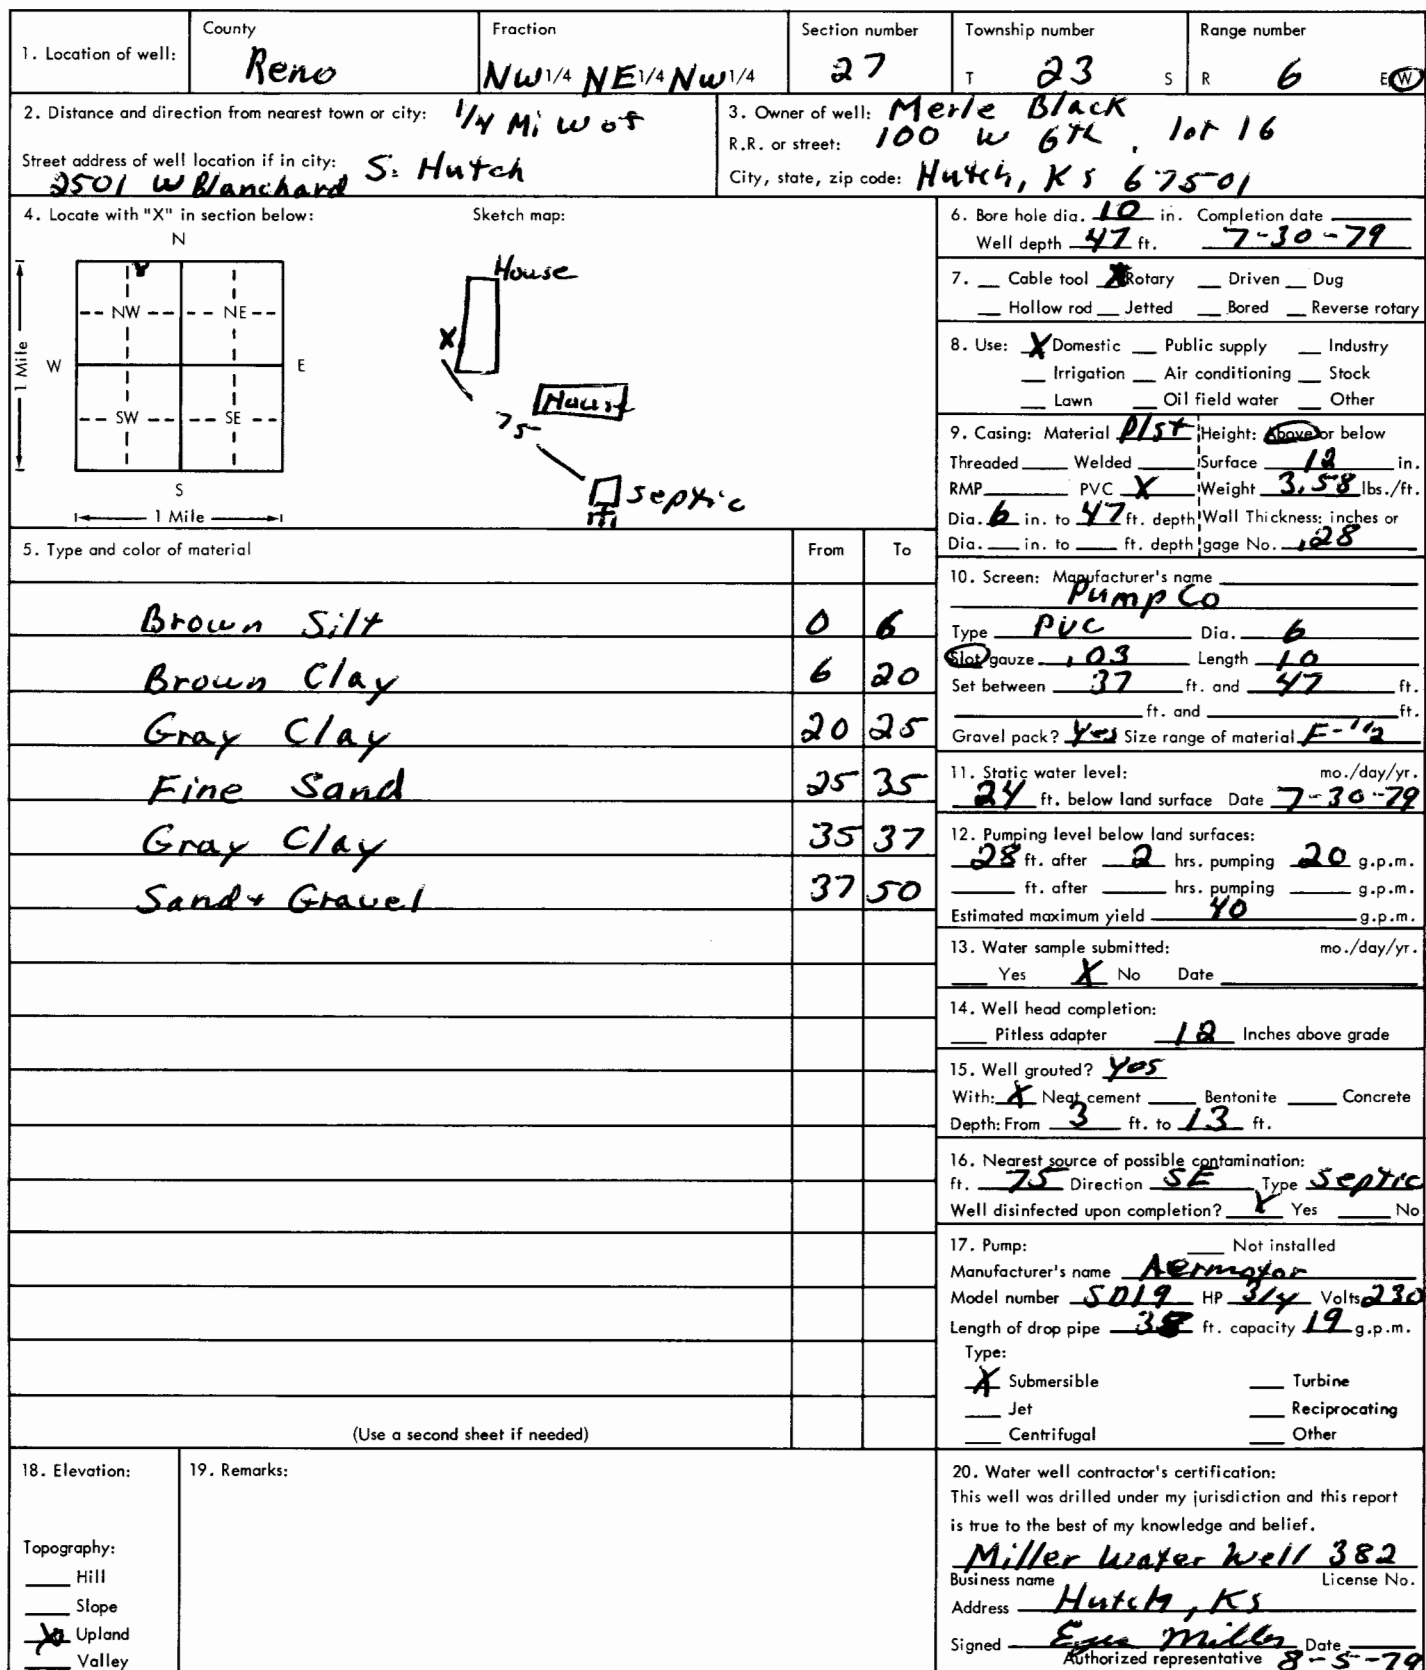 1. Location of well: County Reno Fraction NW 1/4 NE 1/4 NW 1/4 Section number 27 Township number T 23 S Range number R 6 E W
2. Distance and direction from nearest town or city: 1/4 Mi W of
Street address of well location if in city: S. Hutch
2501 W Blanchard
3. Owner of well: Merle Black
R.R. or street: 100 W 6th, lot 16
City, state, zip code: Hutch, Ks 67501
4. Locate with "X" in section below: Sketch map:
N
NW NE
W E
SW SE
S
1 Mile
1 Mile
House
X
House
75
septic
5. Type and color of material From To
Brown Silt 0 6
Brown Clay 6 20
Gray Clay 20 25
Fine Sand 25 35
Gray Clay 35 37
Sand + Gravel 37 50
(Use a second sheet if needed)
6. Bore hole dia. 10 in. Completion date
Well depth 47 ft. 7-30-79
7. Cable tool X Rotary Driven Dug
Hollow rod Jetted Bored Reverse rotary
8. Use: X Domestic Public supply Industry
Irrigation Air conditioning Stock
Lawn Oil field water Other
9. Casing: Material Plst Height: Above or below
Threaded Welded Surface 12 in.
RMP PVC X Weight 3.58 lbs./ft.
Dia. 6 in. to 47 ft. depth Wall Thickness: inches or
Dia. in. to ft. depth gage No. .28
10. Screen: Manufacturer's name
Pump Co
Type PVC Dia. 6
Slot gauze .03 Length 10
Set between 37 ft. and 47 ft.
ft. and ft.
Gravel pack? Yes Size range of material F-1/2
11. Static water level: mo./day/yr.
24 ft. below land surface Date 7-30-79
12. Pumping level below land surfaces:
28 ft. after 2 hrs. pumping 20 g.p.m.
ft. after hrs. pumping g.p.m.
Estimated maximum yield 40 g.p.m.
13. Water sample submitted: mo./day/yr.
Yes X No Date
14. Well head completion:
Pitless adapter 12 Inches above grade
15. Well grouted? Yes
With: X Neat cement Bentonite Concrete
Depth: From 3 ft. to 13 ft.
16. Nearest source of possible contamination:
ft. 75 Direction SE Type Septic
Well disinfected upon completion? X Yes No
17. Pump: Not installed
Manufacturer's name Aermotor
Model number SD19 HP 3/4 Volts 230
Length of drop pipe ft. capacity 19 g.p.m.
Type:
X Submersible Turbine
Jet Reciprocating
Centrifugal Other
18. Elevation:
Topography:
Hill
Slope
X Upland
Valley
19. Remarks:
20. Water well contractor's certification:
This well was drilled under my jurisdiction and this report
is true to the best of my knowledge and belief.
Miller Water Well 382
Business name License No.
Address Hutch, Ks
Signed Miller Date
Authorized representative 8-5-79